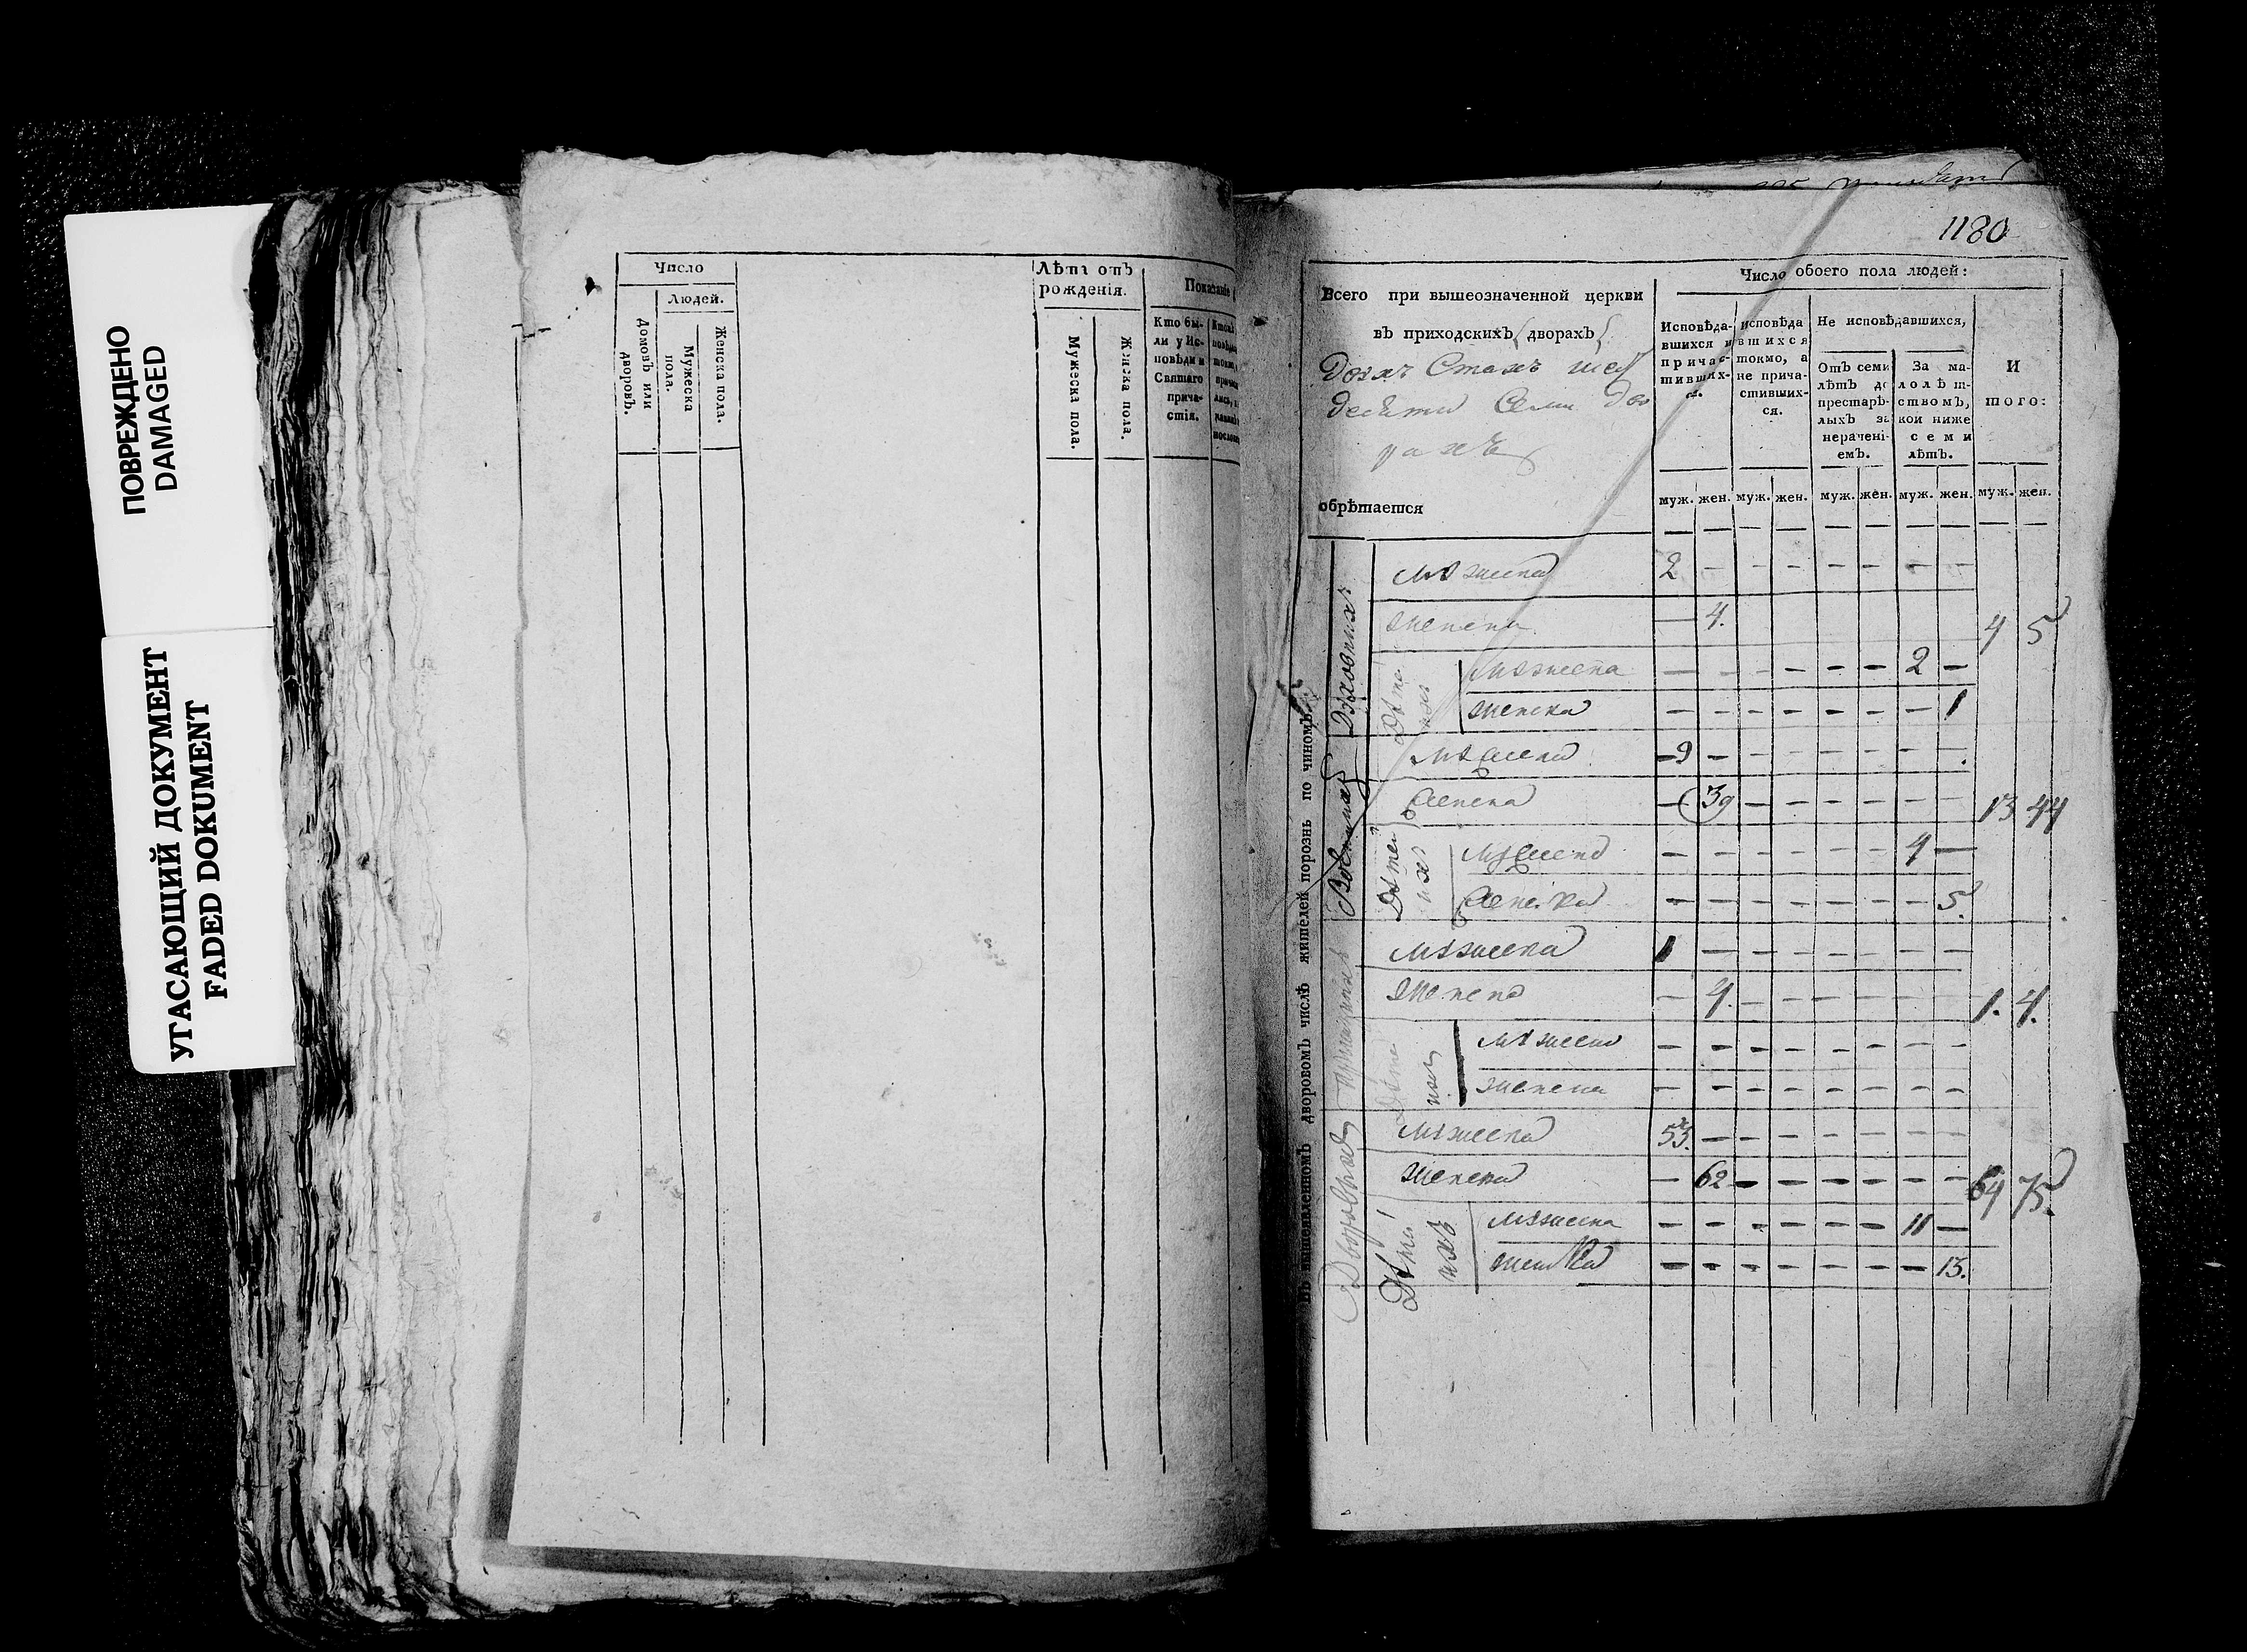 ПОВРЕЖДЕНО
DAMAGED
УГАСАЮЩИЙ ДОКУМЕНТ
FADED DOKUMENT
Число
Людей.
Домовъ или дворовъ.
Мужеска пола.
Женска пола.
Лѣта отъ
рожденія.
Мужеска пола.
Женска пола.
Показаніе
Кто бы-
ли у Ис-
повѣди и
Святаго
прича-
стія.
1180
Всего при вышеозначенной церкви
въ приходскихъ дворахъ
десяти семи дво
рахъ
обрѣтается
Число обоего пола людей:
Исповѣда-
вшихся и
причас-
тивших-
ся.
исповѣда
вшихся
токмо, а
не прича-
стивших-
ся.
Не исповѣдавшихся,
Отъ семи
лѣтъ до
престарѣ-
лыхъ за
нераченi-
емъ.
За ма-
лолѣт-
ствомъ,
кои ниже
семи
лѣтъ.
И
того:
муж. жен. муж. жен. муж. жен. муж. жен. муж. жен.
въ вышеявленномъ дворовомъ числѣ жителей порознь по чиномъ.
Духовныхъ
мужеска 2 — — — — — — —
женска — 4. 4 5
Дѣтей ихъ
мужеска — — — — — — 2 —
женска — — — — — — — 1
Военныхъ
мужеска — 9 — — — — — —
женска — 39 — — — — — — 13 44
Дѣтей ихъ
мужеска — — — — — — 4 —
женска — — — — — — — 5.
мужеска 1 — — — — — — —
женска — 4. — — — — — — 1. 4.
Дѣтей ихъ
мужеска — — — — — — — —
женска — — — — — — — —
Дворовыхъ
мужеска 53. — — — — — — —
женска — 62 — — — — — — 64 75.
Дѣтей ихъ
мужеска — — — — — — 11 —
женска — — — — — — — 13.